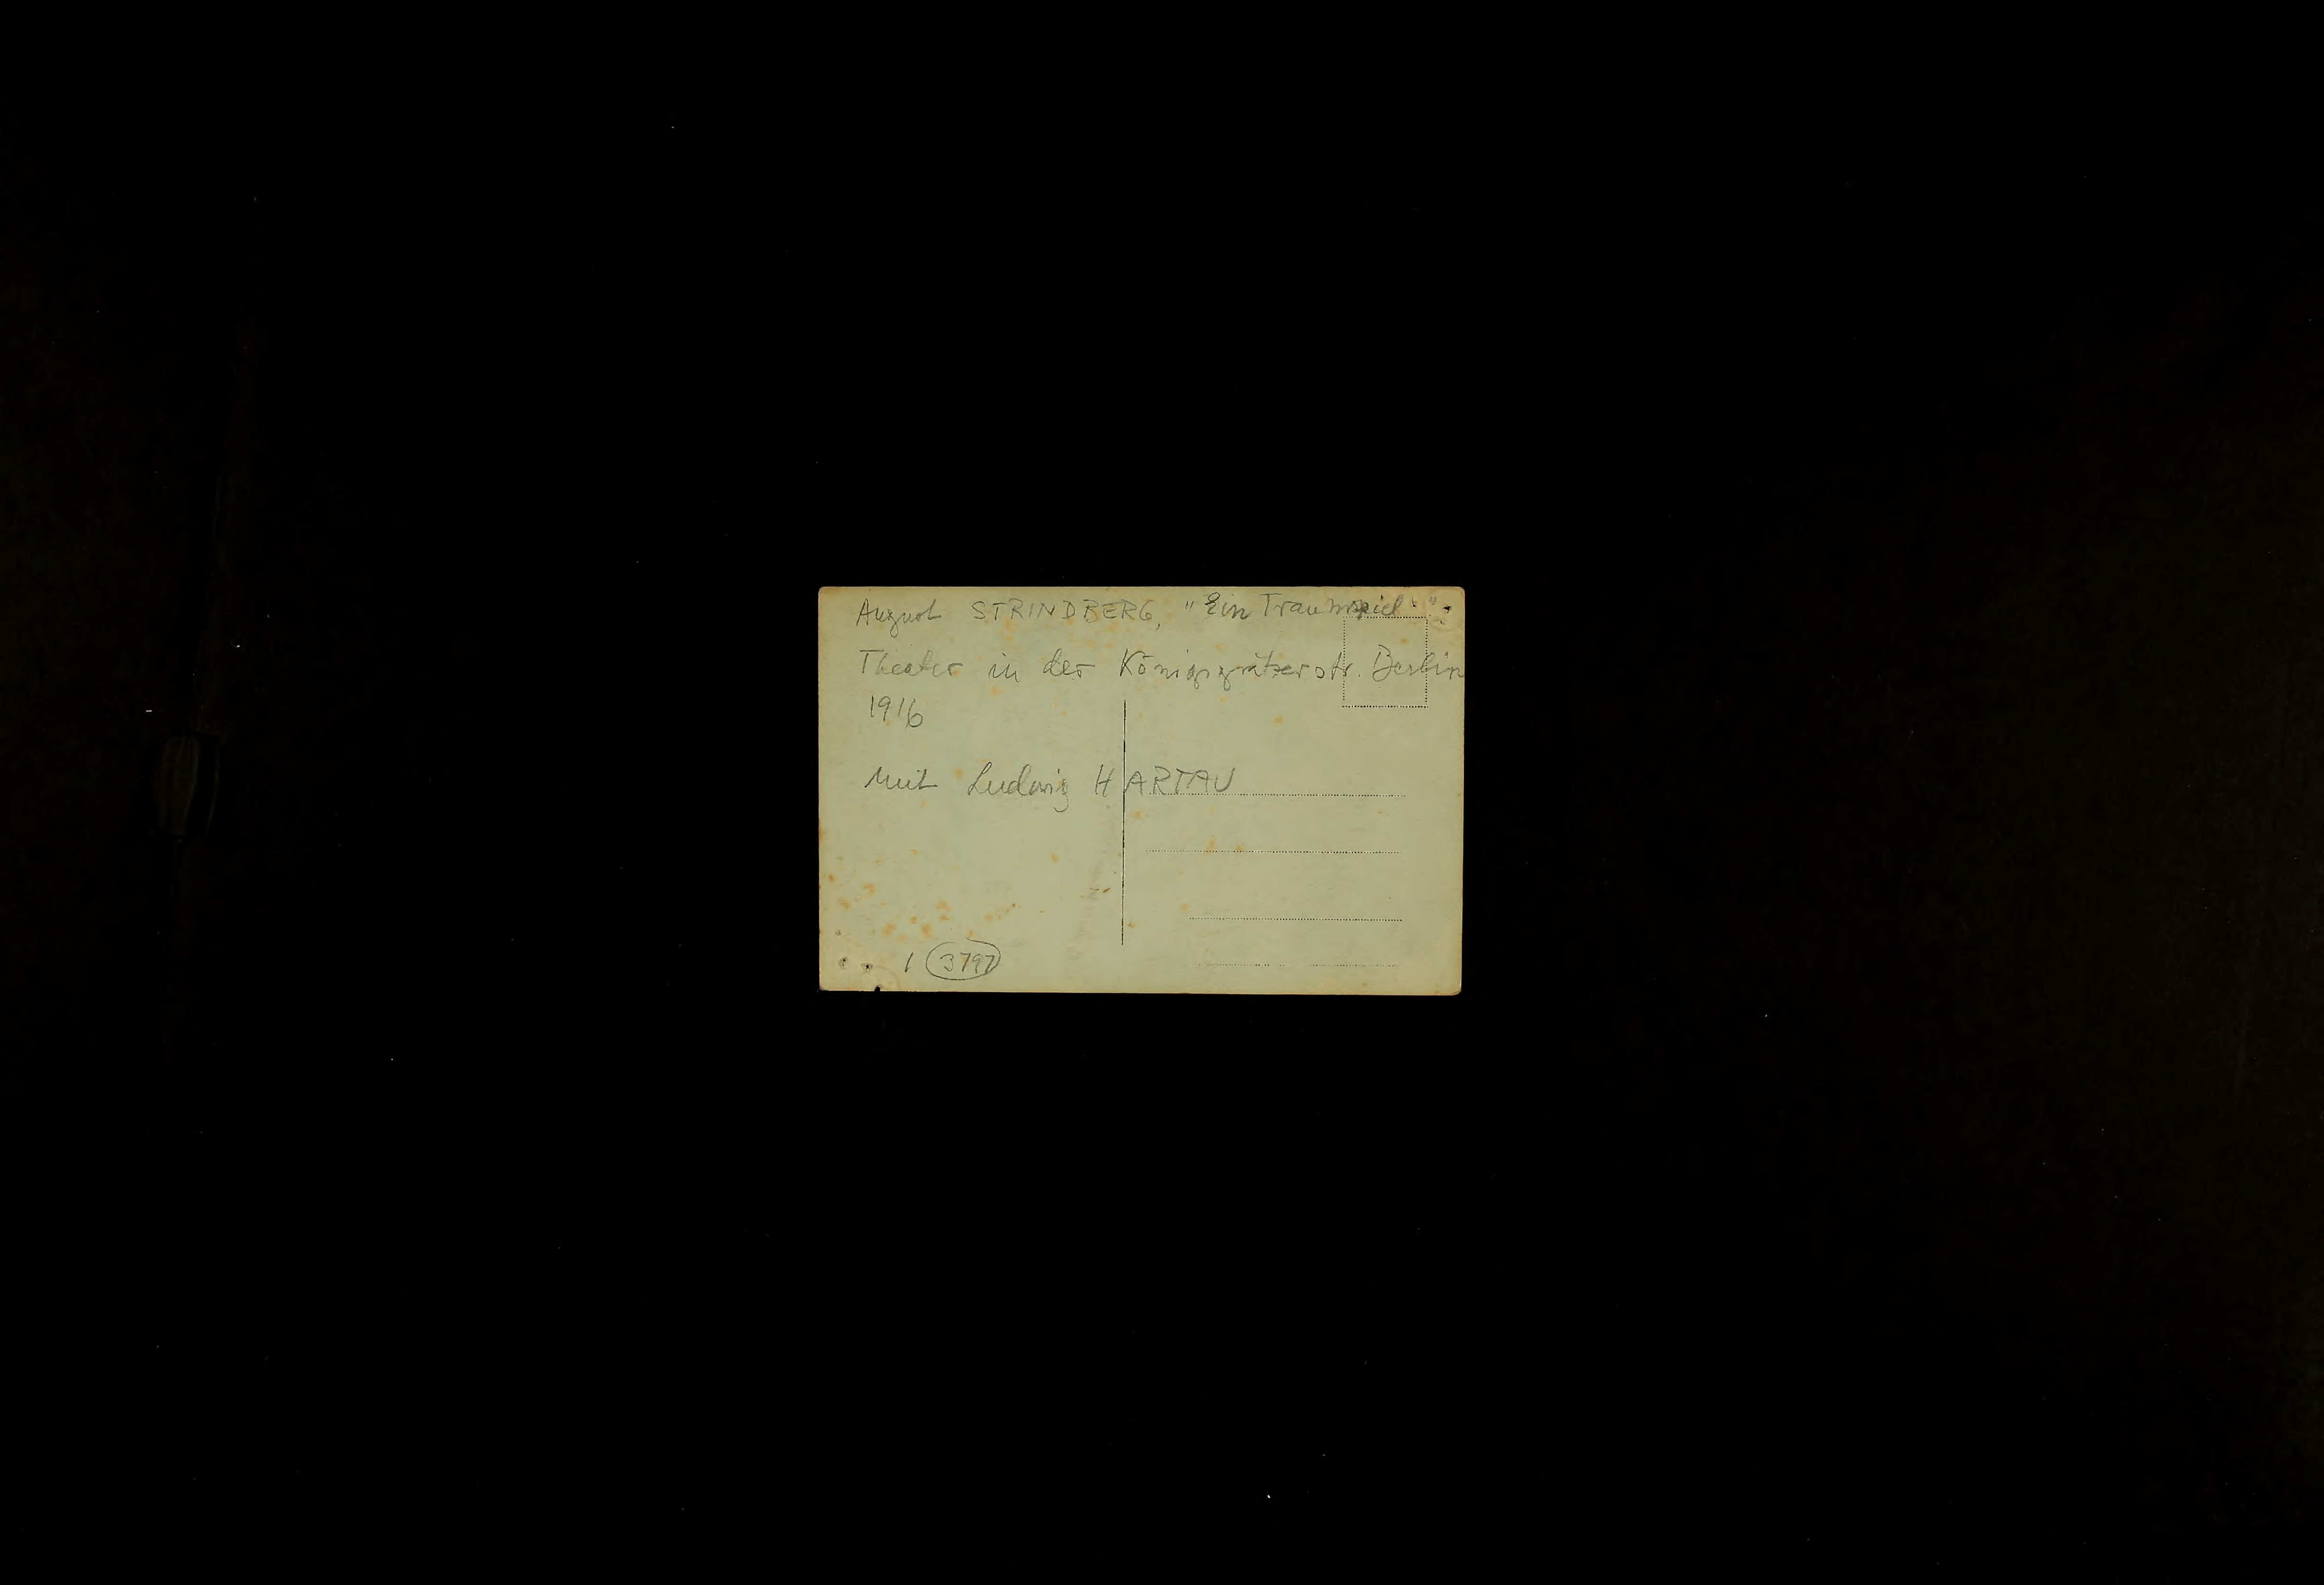 August STRINDBERG, "Ein Traumspiel".
Theater in der Königgrätzerstr. Berlin
1916
Mit Ludwig HARTAU
1 3797